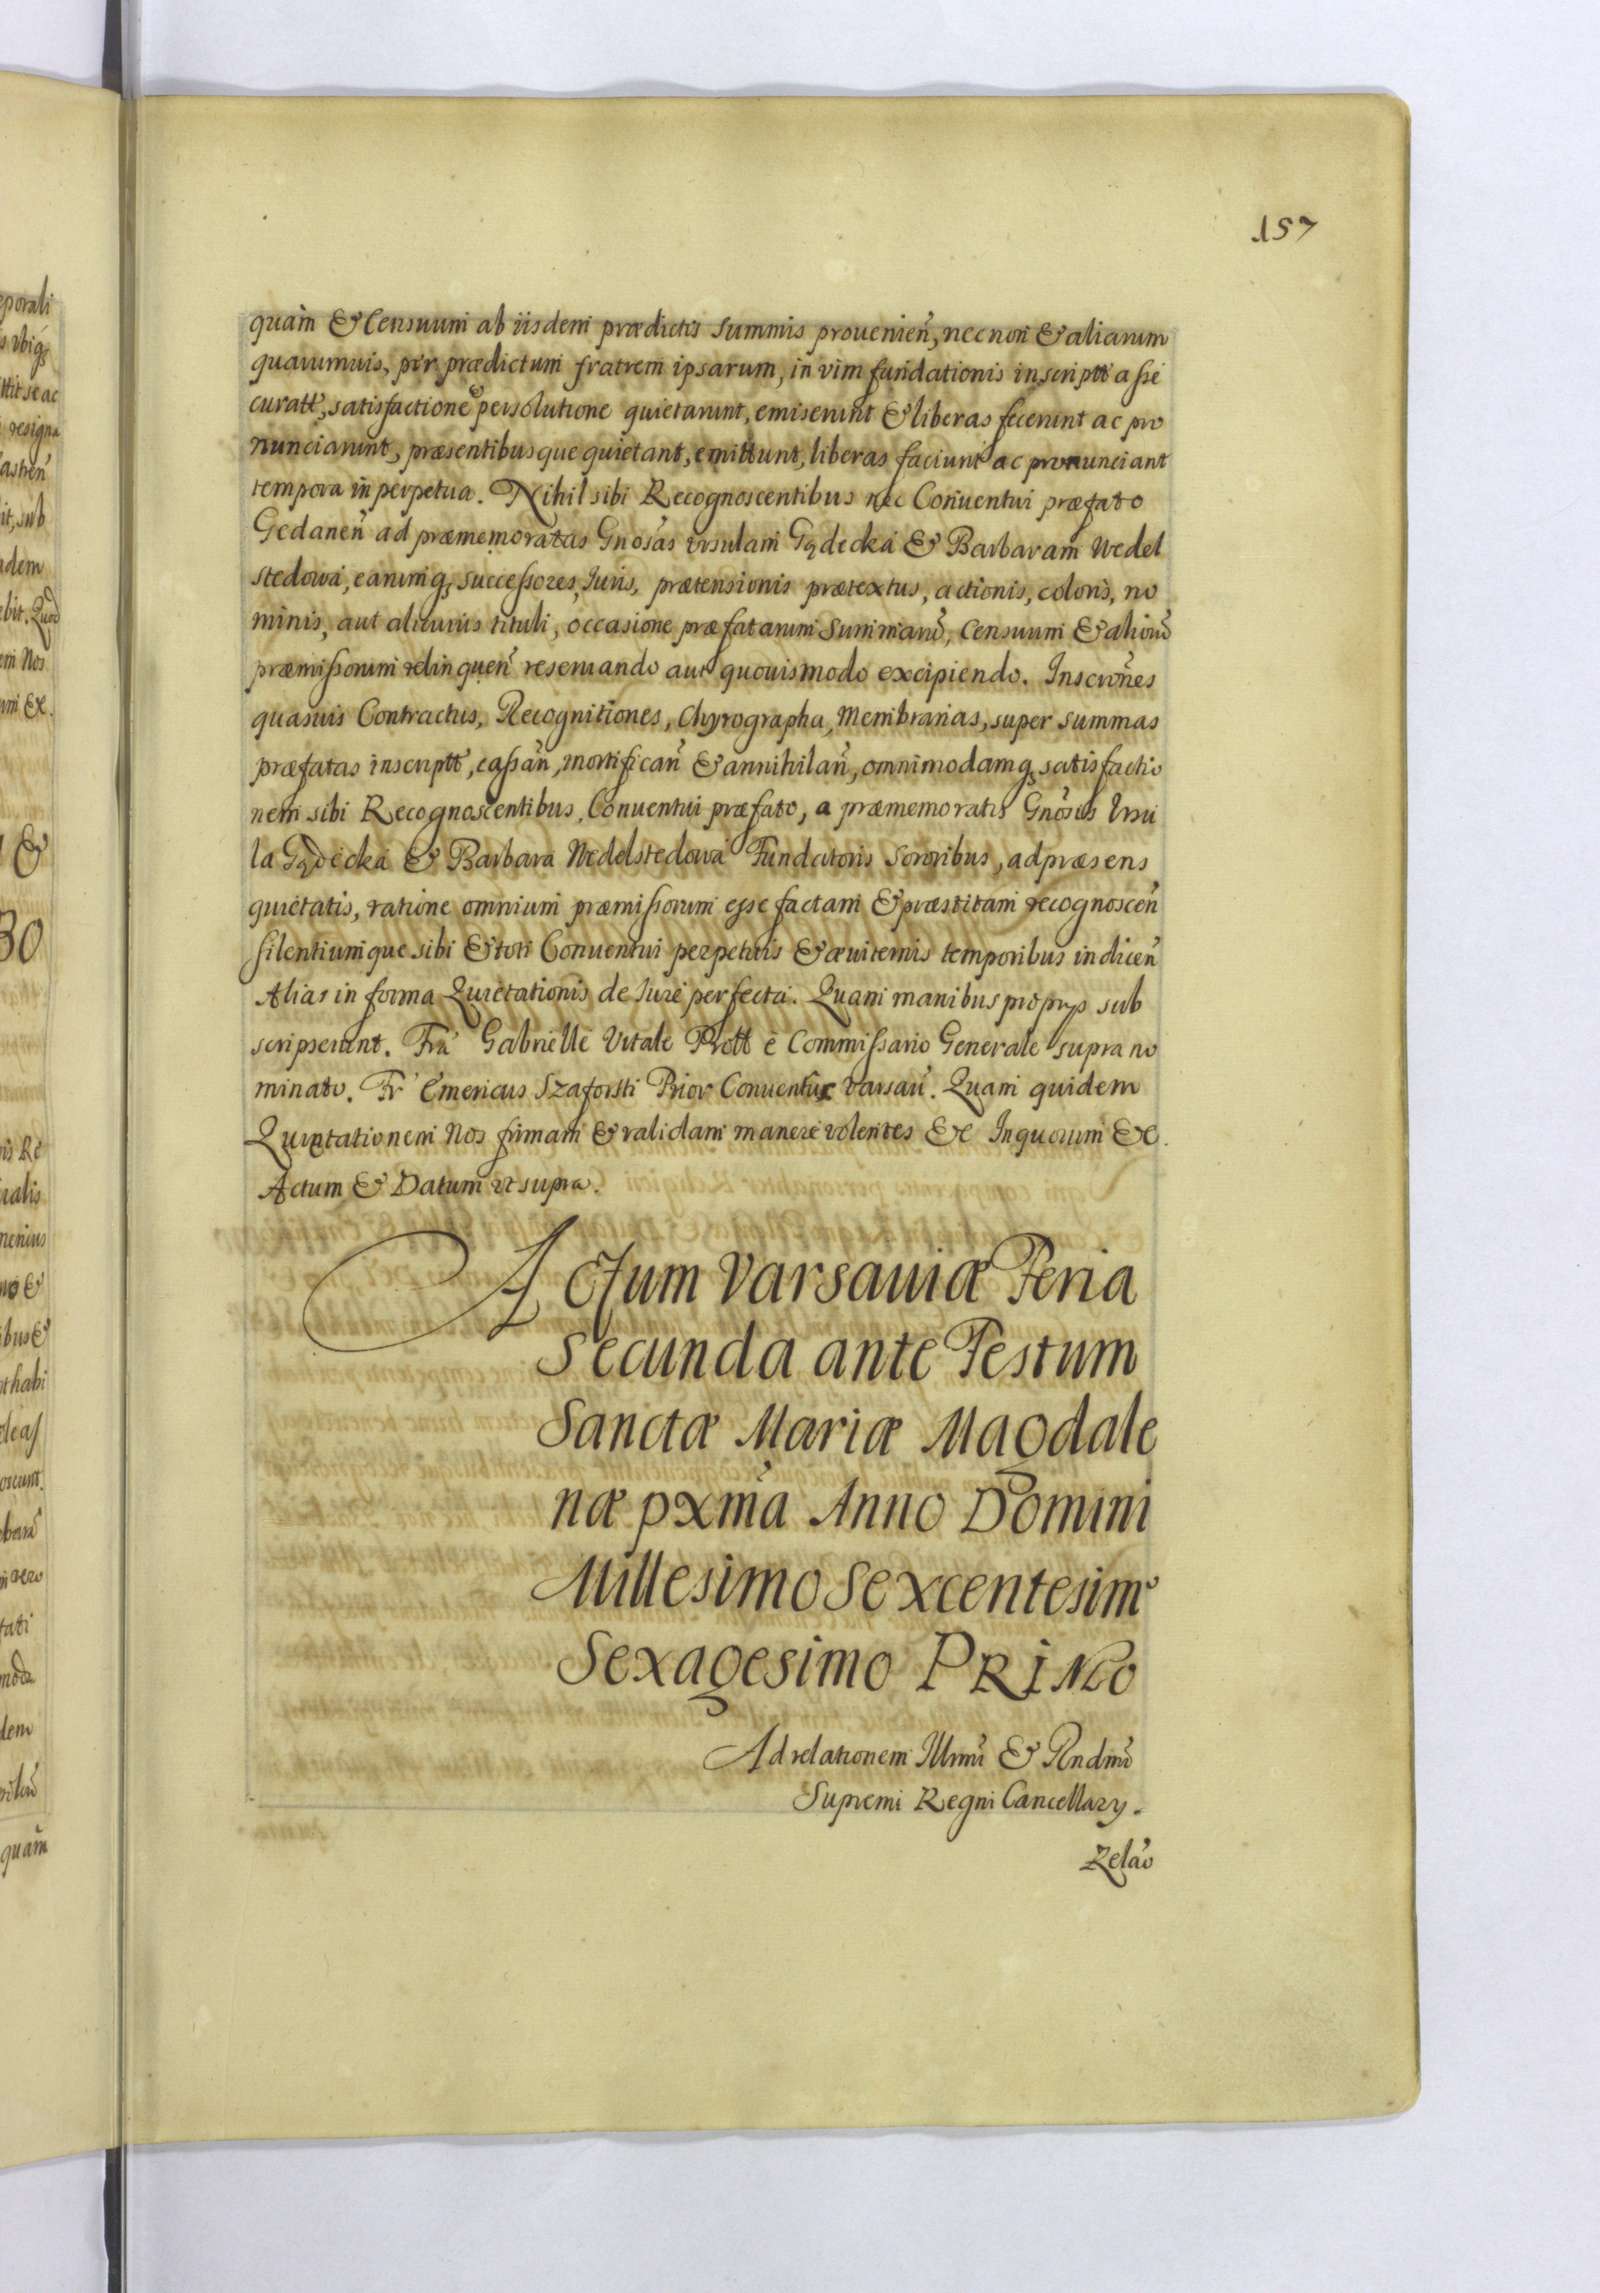 157
quam & Censuum ab iisdem prædictis summis prouenien̄, necnon & aliarum
quarumuis, per prædictum fratrem ipsarum, in vim fundationis inscriptt asse
curatt, satisfactione & persolutione quietarunt, emiserunt & liberas fecerunt ac pro
nunciarunt, præsentibusque quietant, emittunt, liberas faciunt ac pronunciant
tempora in perpetua. Nihil sibi Recognoscentibus nec Conuentui præfato
Gedanen̄ ad præmemoratas Gnōsas Vrsulam Gądecka & Barbaram Wedel
stedowa, earumq; successores, Iuris, prætensionis prætextus, actionis, coloris, no
minis, aut alicuius tituli, occasione præfatarum Summarū, Censuum & aliorū
præmissorum relinquen̄ reseruando aut quouismodo excipiendo. Inscrōnes
quasuis Contractus, Recognitiones, Chyrographa, Membranas, super summas
præfatas inscriptt, cassan̄, mortifican̄ & annihilan̄, omnimodamq; satisfactio
nem sibi Recognoscentibus, Conuentui præfato, a præmemoratis Gnōsis Vrsu
la Gądecka & Barbara Wedelstedowa Fundatoris Sororibus, ad præsens
quietatis, ratione omnium præmissorum esse factam & præstitam recognoscen̄
silentiumque sibi & toti Conuentui perpetuis & æuiternis temporibus indicen̄
Alias in forma Quietationis de Iure perfecta. Quam manibus proprys sub
scripserunt. Fra Gabrielle Vitale Prott e Commissario Generale supra no
minato. Fr Emericus Szaforsti Prior Conuentus Varsau̅. Quam quidem
Quietationem Nos firmam & validam manere volentes &c In quorum &c.
Actum & Datum vt supra.
Actum Varsauiæ Feria
Secunda ante Festum
Sanctæ Mariæ Magdale
næ pxm̄a Anno Domini
Millesimo Sexcentesimo
Sexagesimo PRIMO
Ad relationem Illmī & Rndmī
Supremi Regni Cancellary.
Relāo